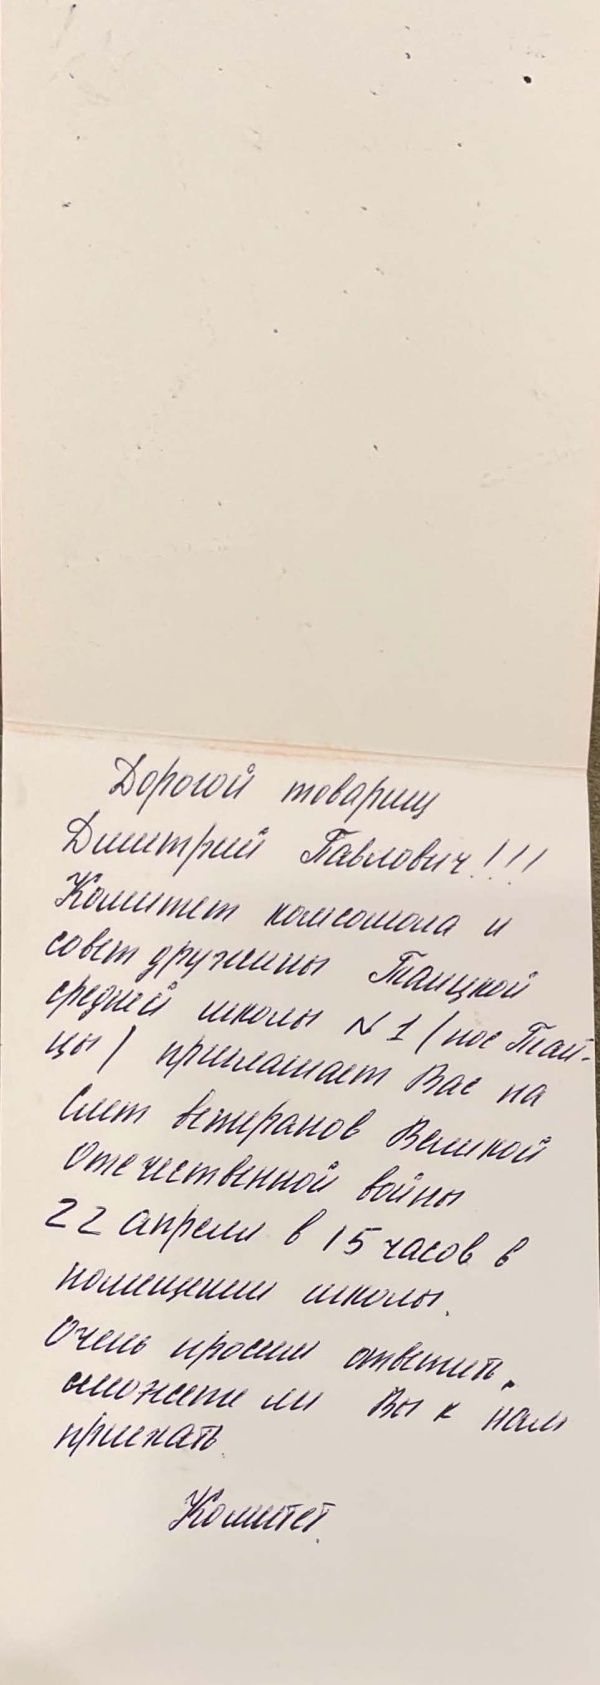 Дорогой товарищ
Дмитрий Павлович!!!
Комитет комсомола и
совет дружины Таицкой
средней школы №1 (пос Тай-
цы) приглашает Вас на
Слет ветеранов Великой
Отечественной войны
22 апреля в 15 часов в
помещении школы.
Очень просим ответить,
сможете ли Вы к нам
приехать.
Комитет.